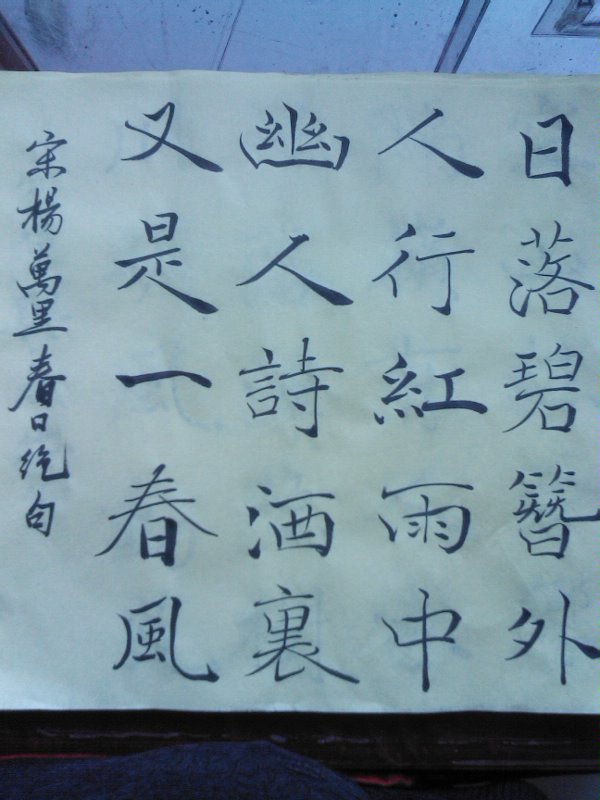 日落碧簪外
人行紅雨中
幽人詩酒裏
又是一春風
宋楊萬里春日絶句